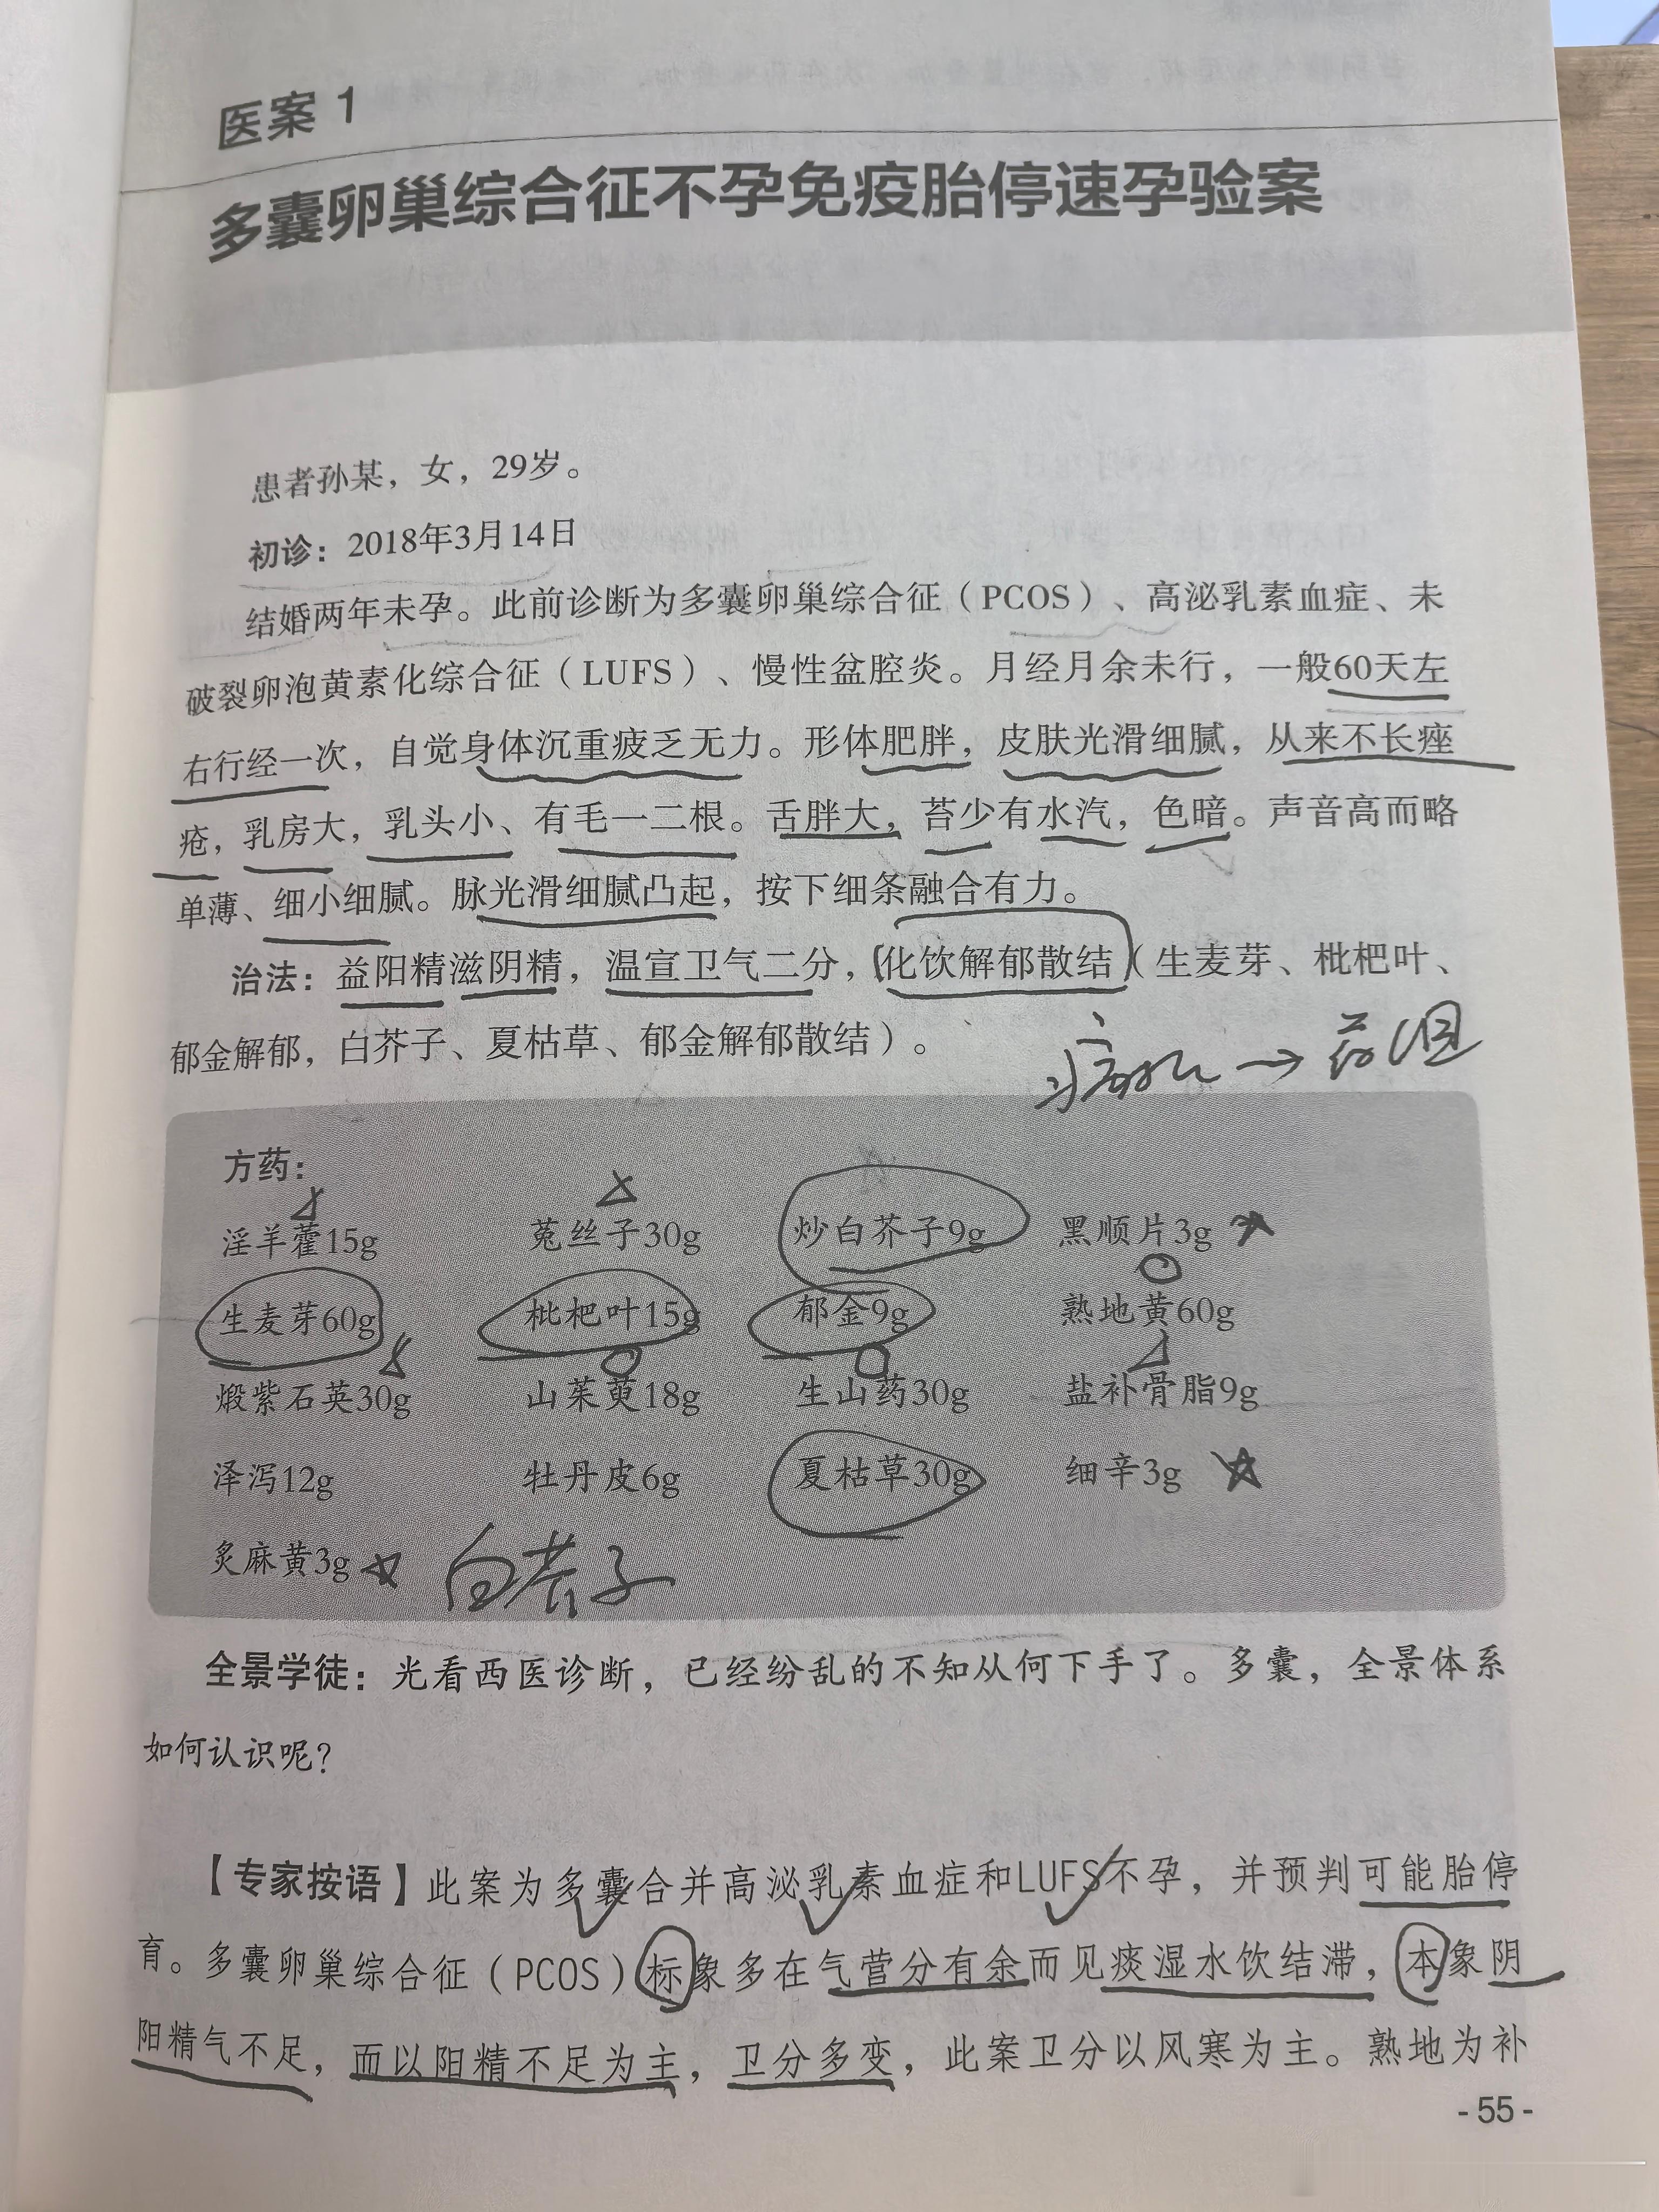 医案 1
多囊卵巢综合征不孕免疫胎停速孕验案
患者孙某，女，29岁。
初诊：2018年3月14日
结婚两年未孕。此前诊断为多囊卵巢综合征（PCOS）、高泌乳素血症、未
破裂卵泡黄素化综合征（LUFS）、慢性盆腔炎。月经月余未行，一般60天左
右行经一次，自觉身体沉重疲乏无力。形体肥胖，皮肤光滑细腻，从来不长痤
疮，乳房大，乳头小、有毛一二根。舌胖大，苔少有水汽，色暗。声音高而略
单薄、细小细腻。脉光滑细腻凸起，按下细条融合有力。
治法：益阳精滋阴精，温宣卫气二分，化饮解郁散结（生麦芽、枇杷叶、
郁金解郁，白芥子、夏枯草、郁金解郁散结）。
方药：
淫羊藿15g 菟丝子30g 炒白芥子9g 黑顺片3g
生麦芽60g 枇杷叶15g 郁金9g 熟地黄60g
煅紫石英30g 山茱萸18g 生山药30g 盐补骨脂9g
泽泻12g 牡丹皮6g 夏枯草30g 细辛3g
炙麻黄3g 白芥子
全景学徒：光看西医诊断，已经纷乱的不知从何下手了。多囊，全景体系
如何认识呢？
【专家按语】此案为多囊合并高泌乳素血症和LUFS不孕，并预判可能胎停
育。多囊卵巢综合征（PCOS）标象多在气营分有余而见痰湿水饮结滞，本象阴
阳精气不足，而以阳精不足为主，卫分多变，此案卫分以风寒为主。熟地为补
- 55 -